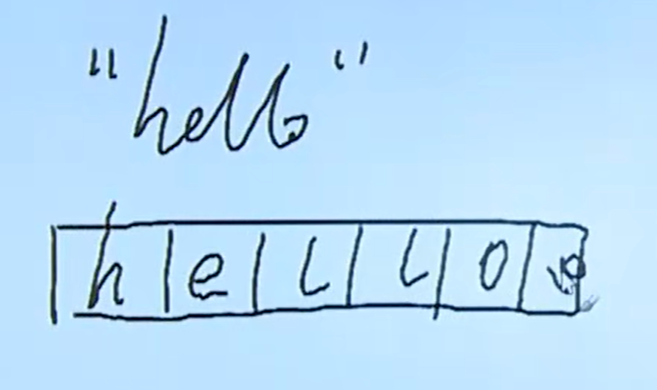 "hello"
h e l l o \0